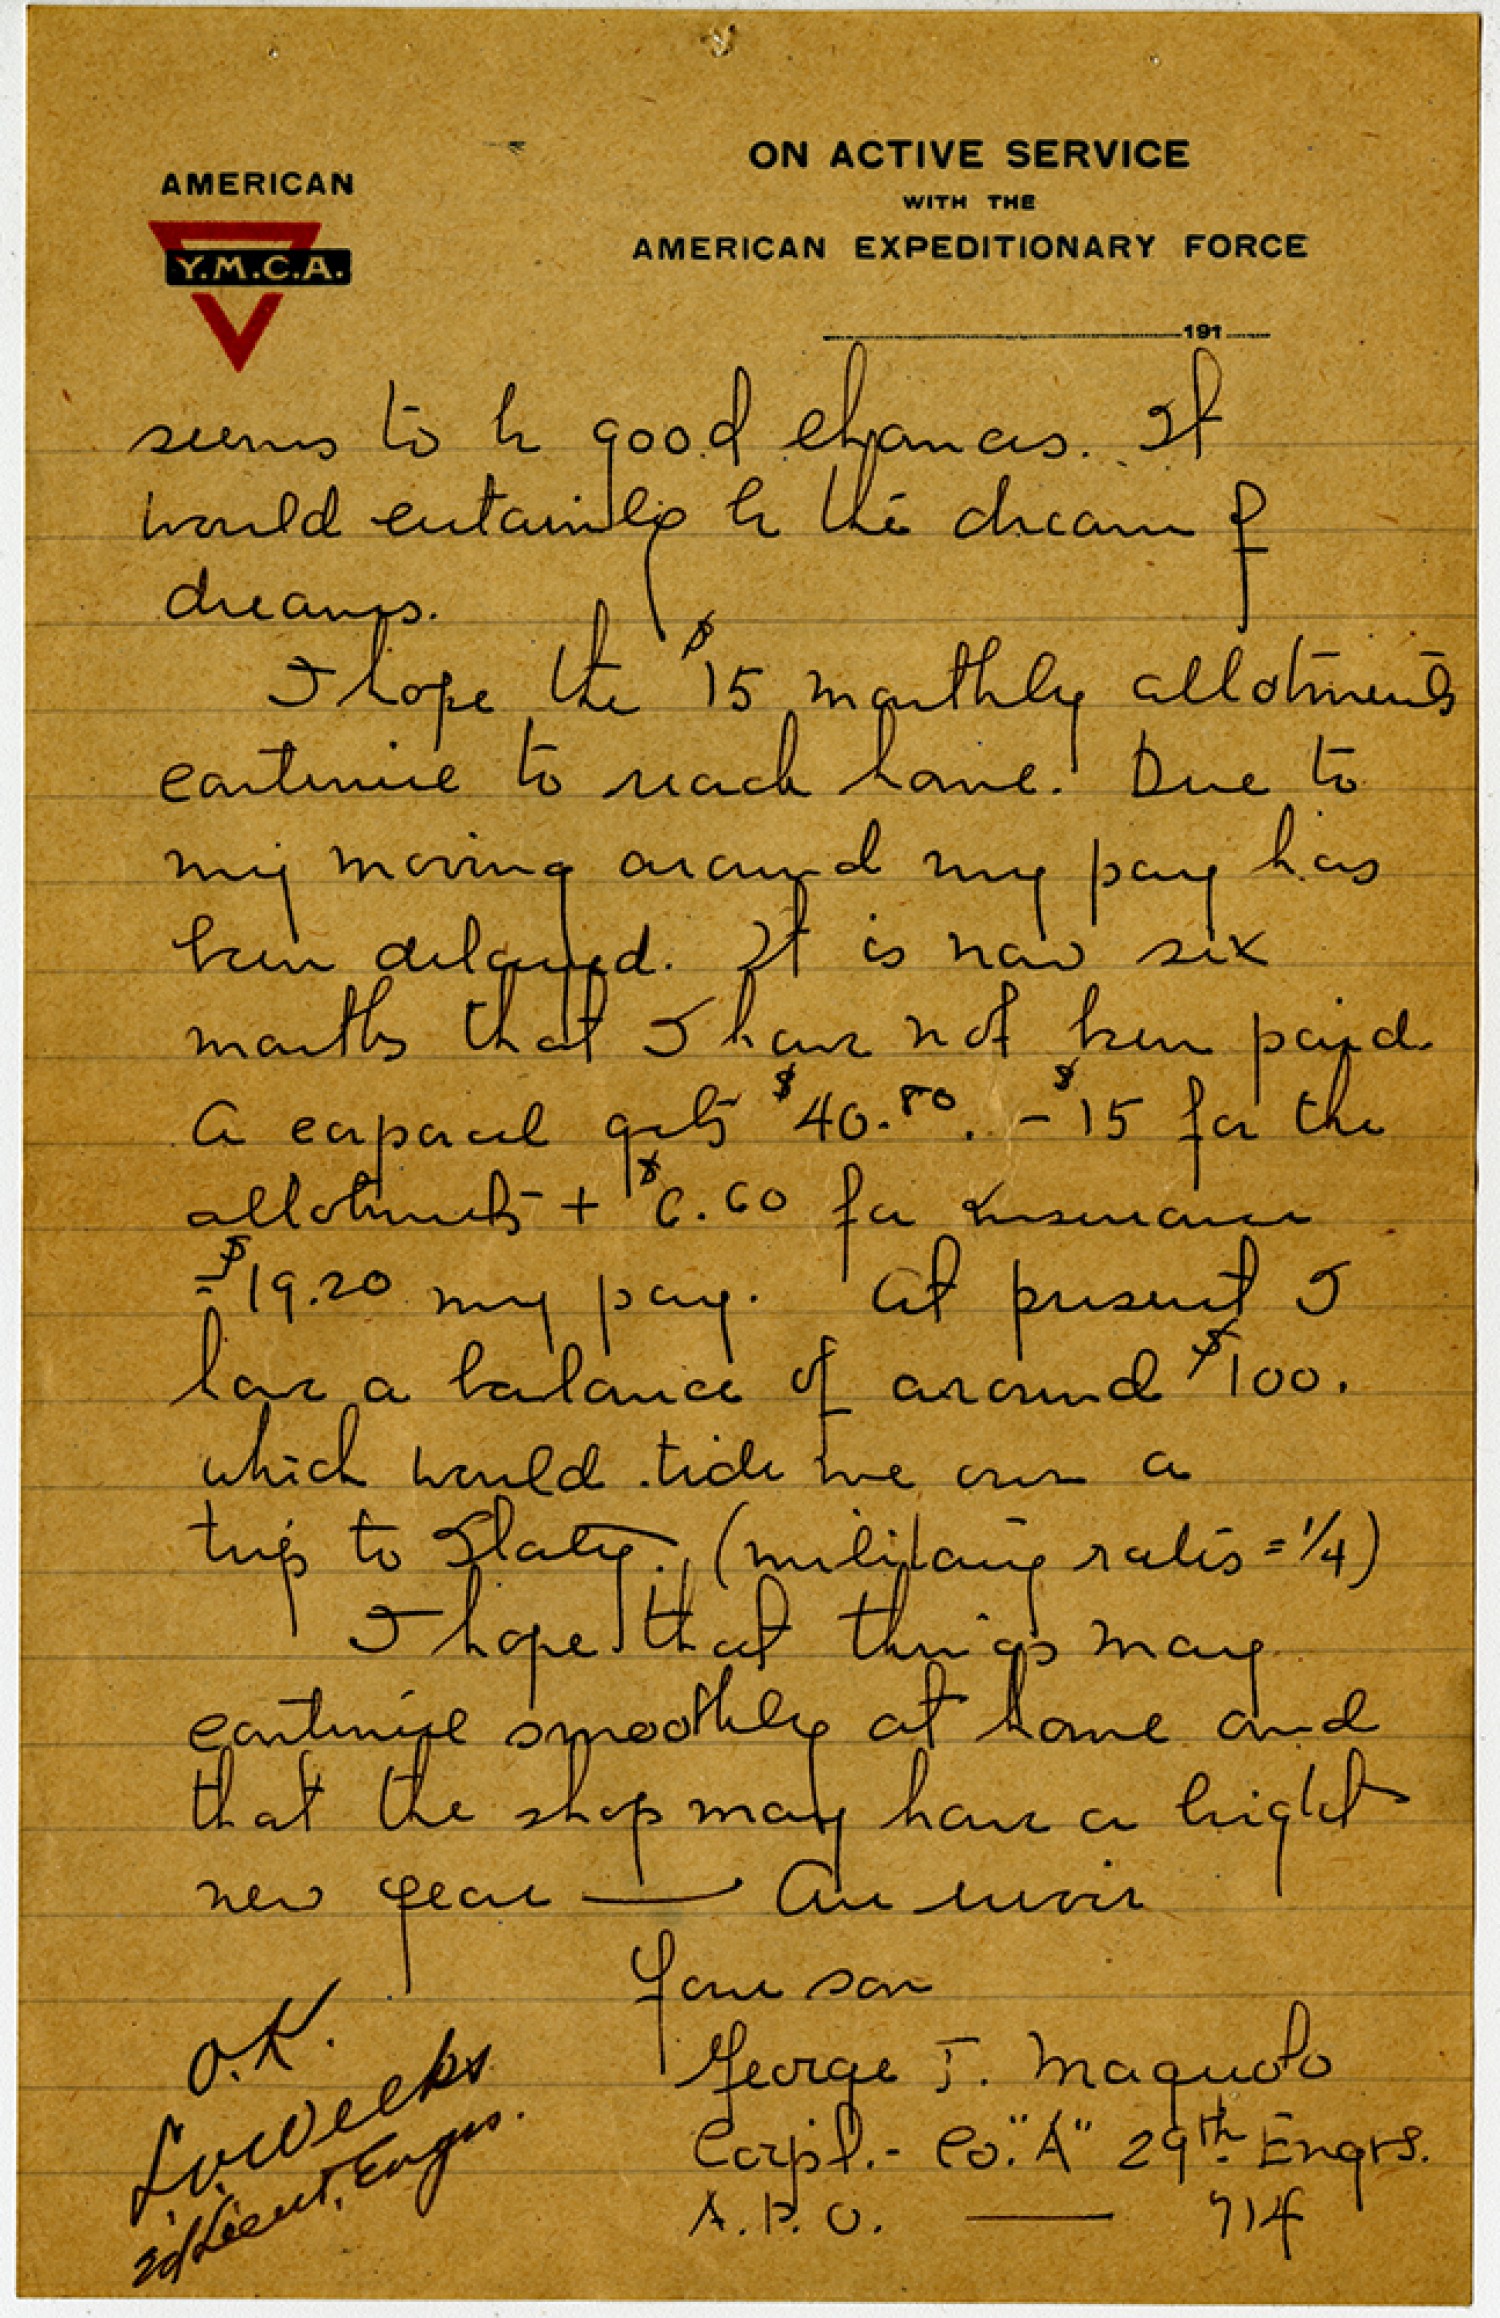 AMERICAN
Y.M.C.A.
ON ACTIVE SERVICE
WITH THE
AMERICAN EXPEDITIONARY FORCE
191
seems to be good chances. It
would certainly be the dream of
dreams.
I hope the $15 monthly allotments
continue to reach home. Due to
my moving around my pay has
been delayed. It is now six
months that I have not been paid.
A corporal gets $40.80. - $15 for the
allotments + $6.60 for insurance
= $19.20 my pay. At present I
have a balance of around $100.
which would tide me over a
trip to Italy. (military rates = 1/4)
I hope that things may
continue smoothly at home and
that the shop may have a bright
new year — Au revoir
Your son
George T. Maquolo
Corpl. - Co. "A" 29th Engrs.
A.P.O. — 714
O.K.
Weeks
2d Lieut, Engrs.